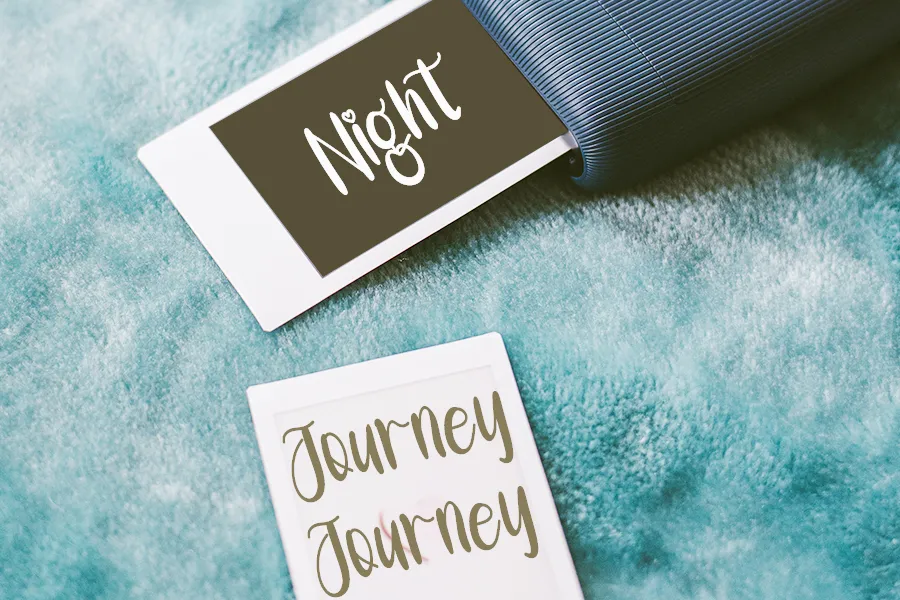 Night
Journey
Journey